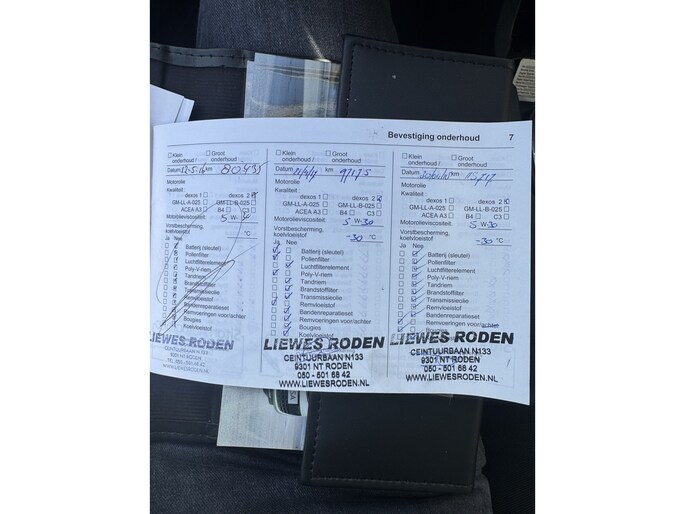 Bevestiging onderhoud 7
Klein onderhoud / Groot onderhoud
Datum 12-5-16 km 80435
Motorolie
Kwaliteit:
dexos 1 dexos 2
GM-LL-A-025 GM-LL-B-025
ACEA A3 B4 C3
Motorolieviscositeit: 5 W-30
Vorstbescherming, koelvloeistof °C
Ja Nee
Batterij (sleutel)
Pollenfilter
Luchtfilterelement
Poly-V-riem
Tandriem
Brandstoffilter
Transmissieolie
Remvloeistof
Bandenreparatieset
Remvoeringen voor/achter
Bougies
Koelvloeistof
LIEWES RODEN
CEINTUURBAAN N 133
9301 NT RODEN
TEL. 050 - 501 68 42
WWW.LIEWESRODEN.NL
Klein onderhoud / Groot onderhoud
Datum km 97175
Motorolie
Kwaliteit:
dexos 1 dexos 2
GM-LL-A-025 GM-LL-B-025
ACEA A3 B4 C3
Motorolieviscositeit: 5 W-30
Vorstbescherming, koelvloeistof -30 °C
Ja Nee
Batterij (sleutel)
Pollenfilter
Luchtfilterelement
Poly-V-riem
Tandriem
Brandstoffilter
Transmissieolie
Remvloeistof
Bandenreparatieset
Remvoeringen voor/achter
Bougies
Koelvloeistof
LIEWES RODEN
CEINTUURBAAN N133
9301 NT RODEN
050 - 501 68 42
WWW.LIEWESRODEN.NL
Klein onderhoud / Groot onderhoud
Datum km
Motorolie
Kwaliteit:
dexos 1 dexos 2
GM-LL-A-025 GM-LL-B-025
ACEA A3 B4 C3
Motorolieviscositeit: 5 W-30
Vorstbescherming, koelvloeistof -30 °C
Ja Nee
Batterij (sleutel)
Pollenfilter
Luchtfilterelement
Poly-V-riem
Tandriem
Brandstoffilter
Transmissieolie
Remvloeistof
Bandenreparatieset
Remvoeringen voor/achter
Bougies
Koelvloeistof
LIEWES RODEN
CEINTUURBAAN N133
9301 NT RODEN
050 - 501 68 42
WWW.LIEWESRODEN.NL